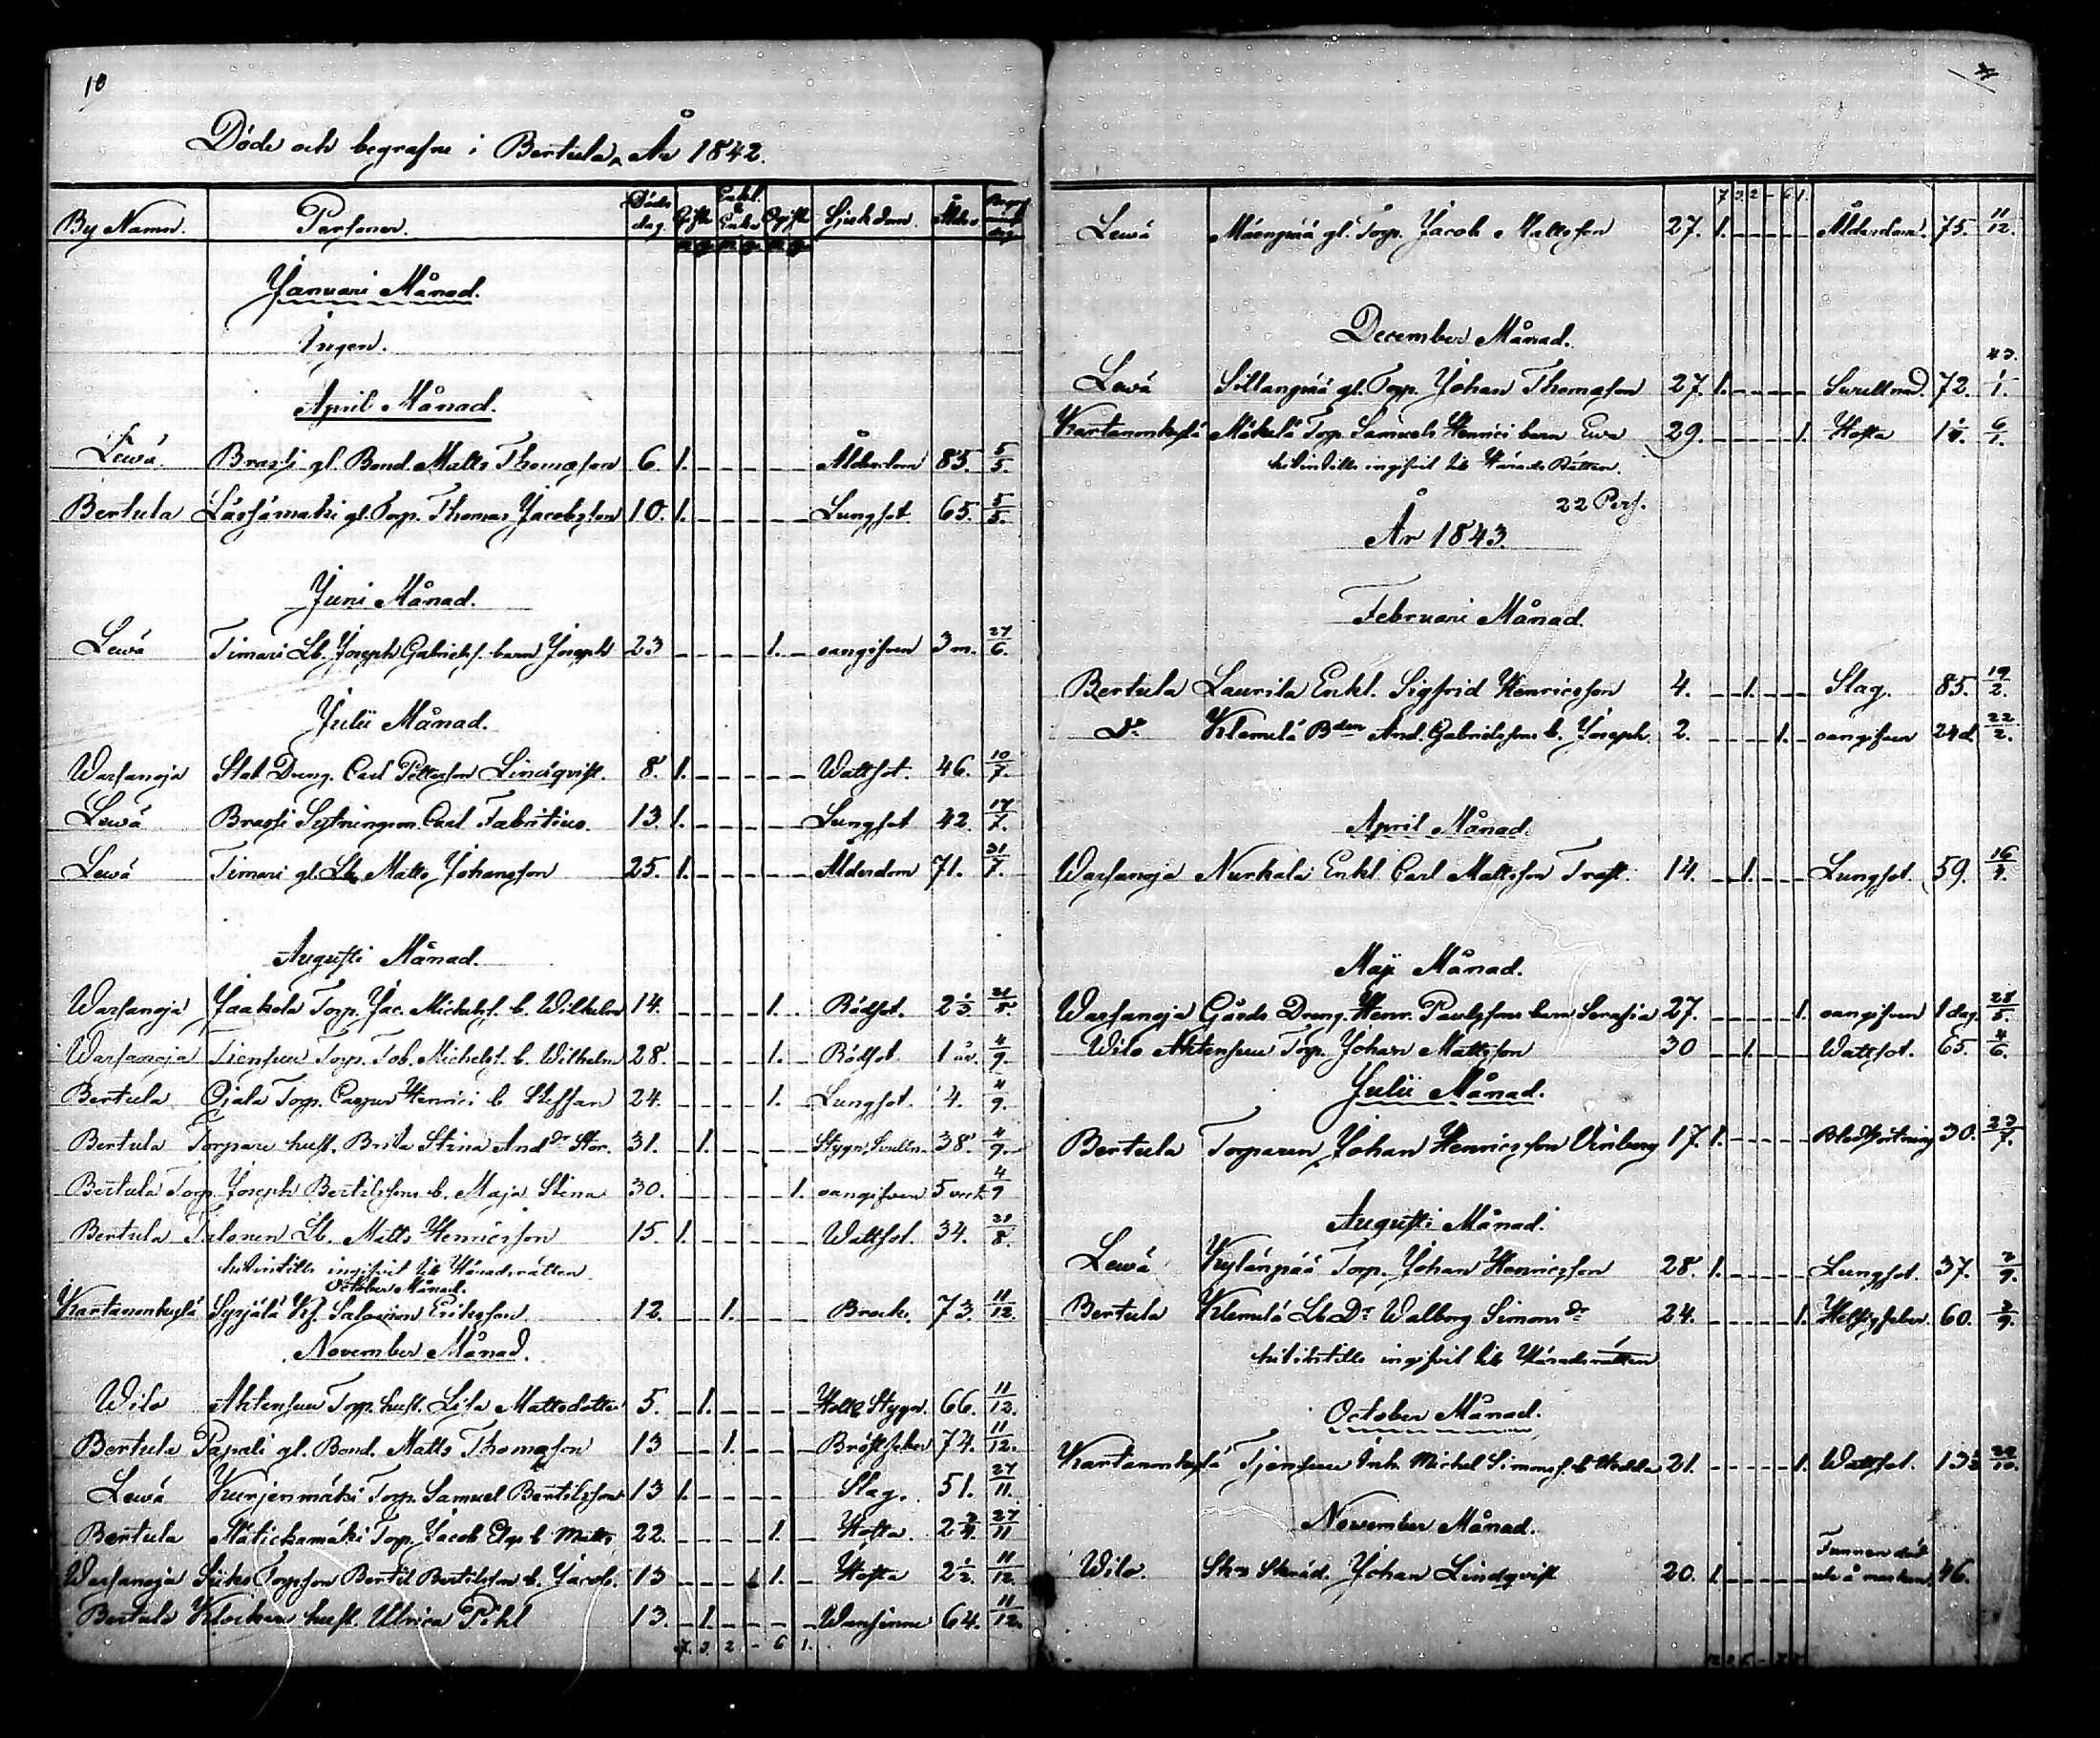 10
Döde och begrafne i Bertula, År 1842.
By Namn. Personer. Döds dag. Gifte Enkl. & Enkor Ogifte Sjukdom. Ålder. Begrafnings dag
M. Q. M. Q. M. Q.
Januari Månad.
Ingen.
April Månad.
Lewä Brasli gl. Bond. Matts Thomasson 6. 1. Ålderdom 85. 5/5.
Bertula Lässämäki gl. Torp. Thomas Jacobsson 10. 1. Lungsot. 65. 5/5.
Juni Månad.
Lewä Timari Lb. Joseph Gabrielss. barn Joseph 23 1. oangifven 3 m. 27/6.
Julii Månad.
Warsanoja Stat Dreng. Carl Pettersson Lindqvist. 8. 1. Wattsot. 46. 10/7.
Lewä Brasli Sytningsm. Carl Fabritius. 13. 1. Lungsot 42. 17/7.
Lewä Timari gl. Lb. Matts Johansson 25. 1. Ålderdom 71. 31/7.
Augusti Månad.
Warsanoja Jaakola Torp. Jac. Michelss. b. Wilhelm 14. 1. Rödsot. 21/8.
Warsanoja Tiensuu Torp. Tob. Michelss. b. Wilhelm 28. 1. Rödsot 1 år. 4/9.
Bertula Ojala Torp. Casper Henrici b. Steffan 24. 1. Lungsot. 4. 4/9.
Bertula Torpare hust. Brita Stina And.dr Stor. 31. 1. Stygn, Svulln. 38. 4/9.
Bertula Torp. Joseph Bertilssons b. Maja Stina 30. 1. oangifven 5 veck. 4/9
Bertula Talonen Lb. Matts Henricsson 15. 1. Wattsot. 34. 21/8.
hitintills ingifvit till Häradsrätten
October Månad.
Kartanonkylä Syrjälä Salomon Ericsson 12. 1. Brock. 73. 11/12.
November Månad.
Wilo Ahtensuu Torp. hust. Lisa Mattsdotter 5. 1. Håll & Stygn. 66. 11/12.
Bertula Papali gl. Bond. Matts Thomasson 13 1. Bröstfeber 74. 11/12.
Lewä Kurjenmäki Torp. Samuel Bertilsson 13 1. Slag. 51. 27/11.
Bertula Mätickämäki Torp. Jacob b. Matts 22. 1. Hosta. 27/11
Warsanoja Torpson Bertil Bertilsson b. Jacob. 13 1. Hosta 2 1/2. 11/12.
Bertula Klockare hust. Ulrica Pihl 13. 1. 64. 11/12.
7. 3. 2 - 6 1.
7 3 2 - 6 1.
Lewä Mäenpää gl. Torp. Jacob Mattsson 27. 1. Ålderdom. 75. 11/12.
December Månad.
43.
Lewä Sillanpää gl. Torp. Johan Thomasson 27. 1. Svullnad. 72. 1/1.
Kartanonkylä Mäkelä Torp. Samuels Henrici barn Eva 29. 1. Hosta 6/1.
hitintills ingifvit till Härads Rätten.
22 Pers.
År 1843.
Februari Månad.
Bertula Laurila Enkl. Sigfrid Henricsson 4. 1. Slag. 85. 19/2.
Do Klemelä Bden And. Gabrielssons b. Joseph. 2. 1. oangifven 24 d. 22/2.
April Månad.
Warsanoja Nurkala Enkl. Carl Mattsson Trast. 14. 1. Lungsot. 59. 16/4.
Maji Månad.
Warsanoja Gårds Dreng. Henr. Paulssons barn Serafia 27. 1. oangifven 1 dag. 28/5
Wilo Ahtensuu Torp. Johan Mattsson 30 1. Wattsot. 65. 4/6.
Julii Månad.
Bertula Torparen Johan Henricsson Vinberg 17. 1. Blodstörtning 30. 23/7.
Augusti Månad.
Lewä Kylänpää Torp. Johan Henricsson 28. 1. Lungsot. 37. 3/9.
Bertula Klemelä Lb. Dr Walborg Simonsdr 24. 1. Hetsigfeber. 60. 3/9.
hitintills ingifvit till Häradsrätten
October Månad.
Kartanonkylä Tjensuu Inh. Michel Simonss. b. Hedda 21. 1. Wattsot. 22/10.
November Månad.
Wilo. Skräd. Johan Lindqvist 20. 1. Funnen död ute å marken. 46.